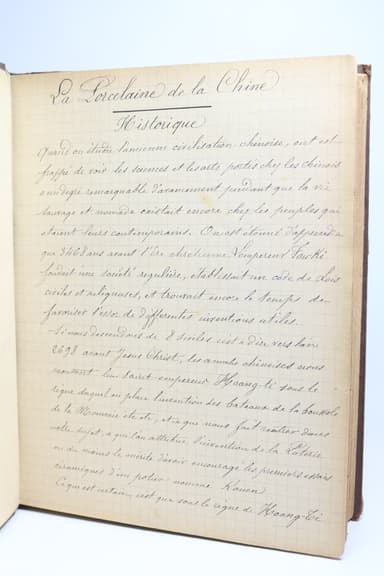 La Porcelaine de la Chine
Historique
Quand on étudie l'ancienne civilisation chinoise, on est
frappé de voir les sciences et les arts portés chez les chinois
a un degré remarquable d'avancement pendant que la vie
sauvage et nomade existait encore chez les peuples qui
étaient leurs contemporains. On est étonné d'apprendre
que 3468 ans avant l'Ere chrétienne l'empereur Fou-Ki
fondait une société régulière, établissait un code de Lois
civiles et religieuses, et trouvait encore le temps de
favoriser l'essor de différentes inventions utiles.
Si nous descendons de 8 siècles c'est a dire vers l'an
2698 avant Jesus Christ, les annales chinoises nous
montrent leur savant empereur Hoang-ti sous le
règne duquel on place l'invention des bateaux de la boussole
de la Monnaie etc etc, et ce que nous fait rentrer dans
notre sujet, a qui l'on attribue l'invention de la Poterie
ou du moins le mérite d'avoir encouragé les premiers essais
céramiques d'un potier nommé Kouen
Ce qui est certain c'est que sous le règne de Hoang-Ti